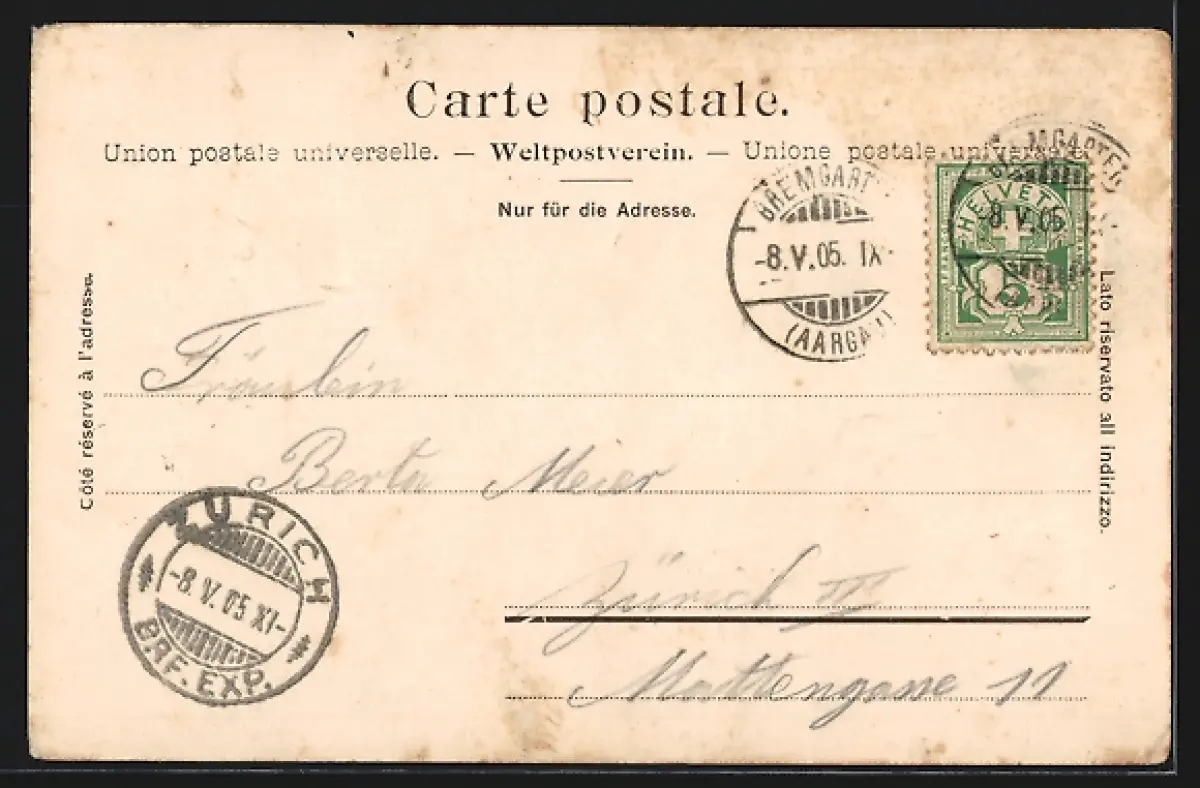 Carte postale.
Union postale universelle. — Weltpostverein. — Unione postale universale
Nur für die Adresse.
BREMGART
-8.V.05. IX-
(AARGAU)
BREMGARTEN
-8.V.05
HELVETIA
5
Côté réservé à l'adresse.
Lato riservato all indirizzo.
Fräulein
Berta Meier
Zürich III
Mattengasse 11
ZÜRICH
-8.V.05.XI-
BRF. EXP.